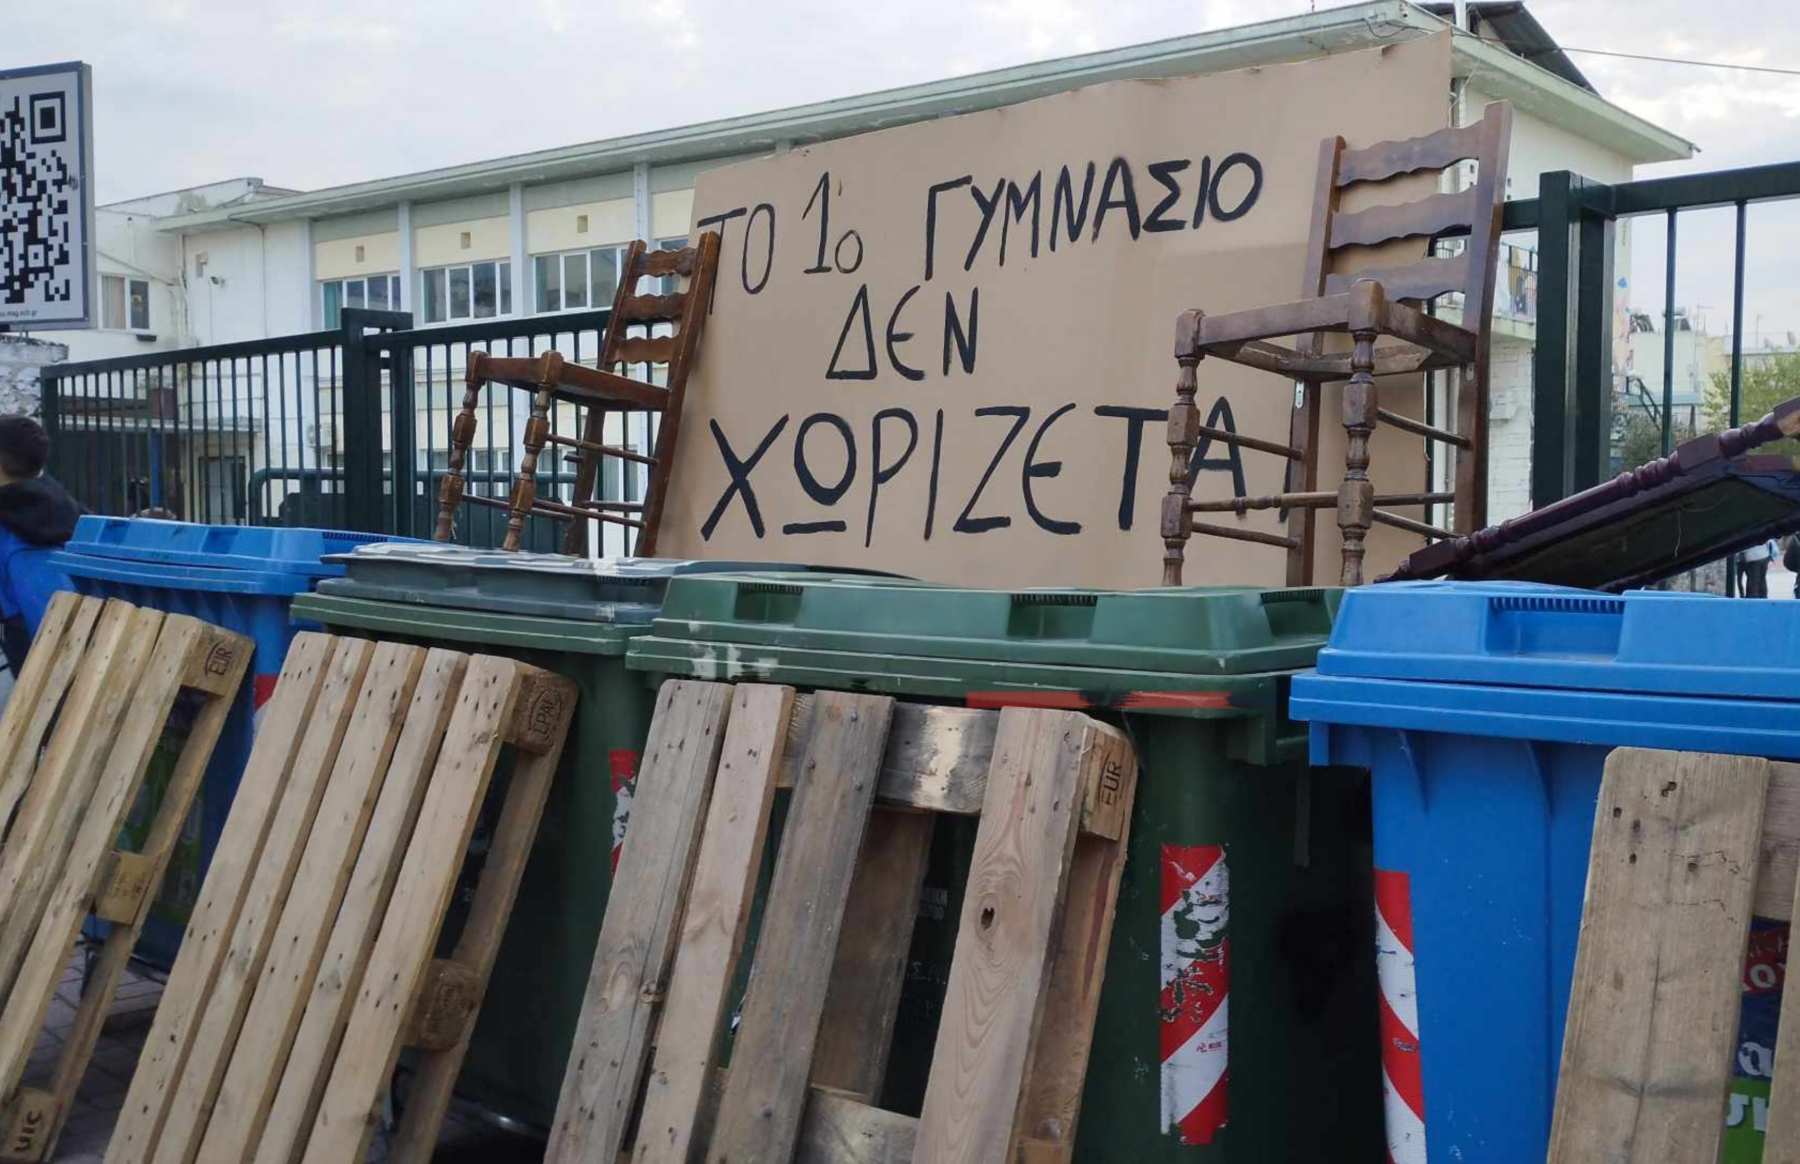 ΤΟ 1ο ΓΥΜΝΑΣΙΟ
ΔΕΝ
ΧΩΡΙΖΕΤΑΙ
EUR
EPAL
EUR